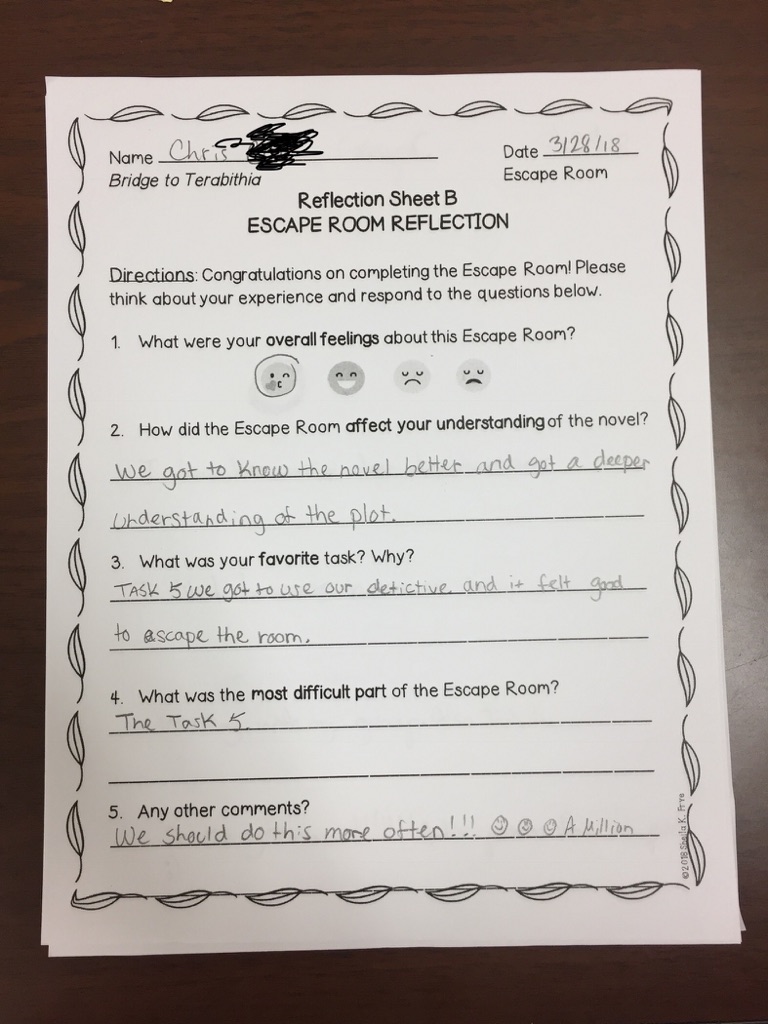 Name Chris
Date 3/28/18
Bridge to Terabithia
Escape Room
Reflection Sheet B
ESCAPE ROOM REFLECTION
Directions: Congratulations on completing the Escape Room! Please
think about your experience and respond to the questions below.
1. What were your overall feelings about this Escape Room?
2. How did the Escape Room affect your understanding of the novel?
We got to know the novel better and got a deeper
understanding of the plot.
3. What was your favorite task? Why?
TASK 5 we got to use our detictive, and it felt good
to escape the room.
4. What was the most difficult part of the Escape Room?
The Task 5.
5. Any other comments?
We should do this more often!!! ☺ ☺ ☺ A Million
©2018 Sheila K. Frye